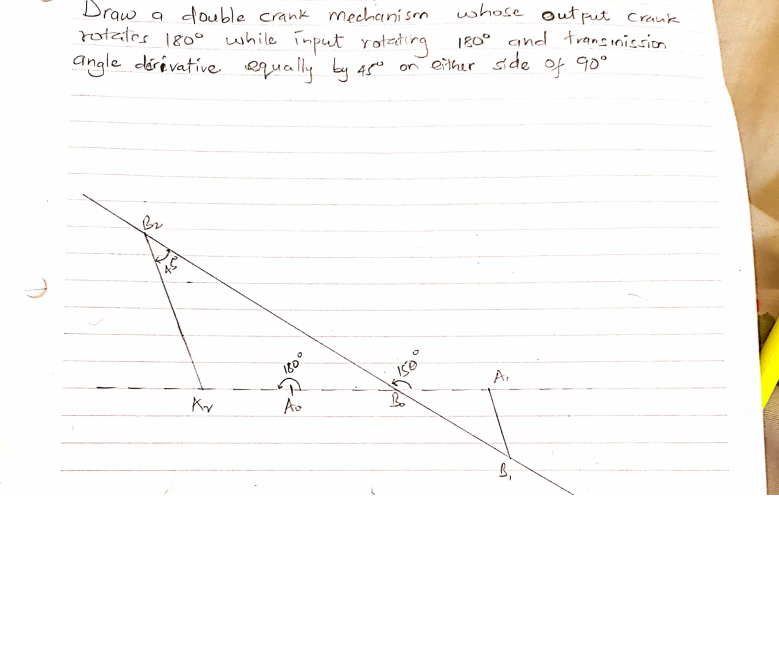 Draw a double crank mechanism whose output crank
rotates 180° while input rotating 180° and transmission
angle derivative equally by 45° on either side of 90°
B2
45
180°
150°
A1
A0
B0
B1